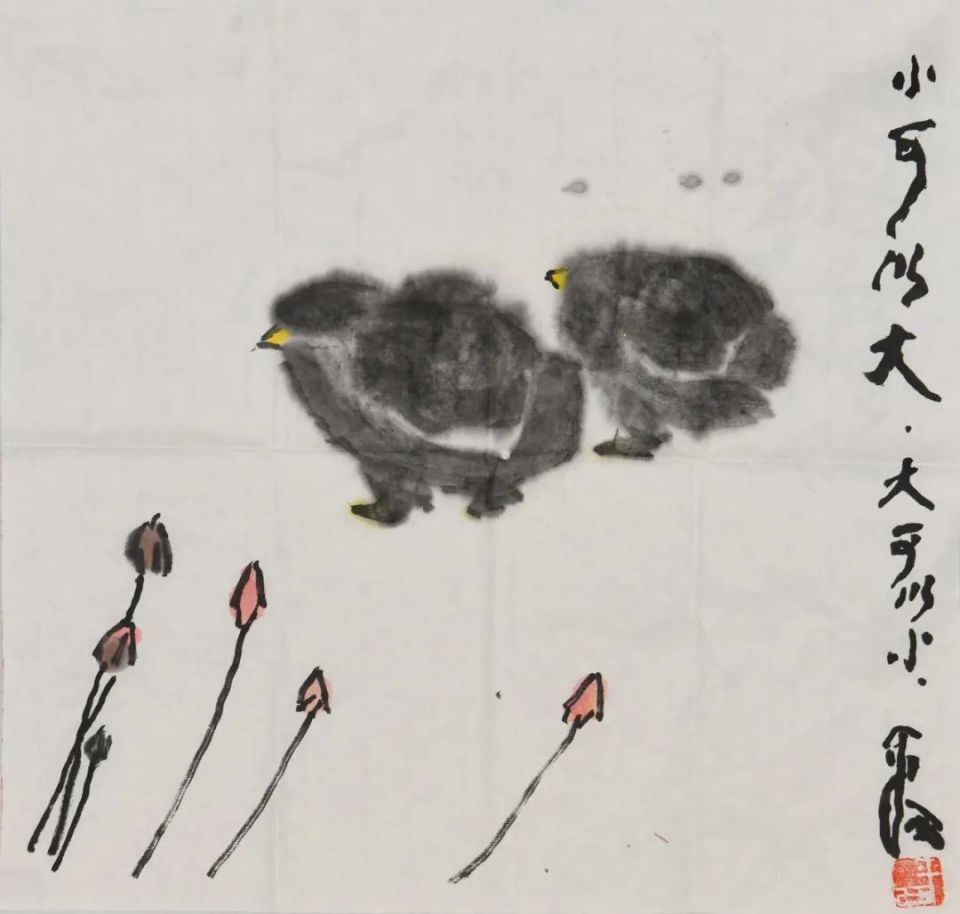 小可以大．大可以小．